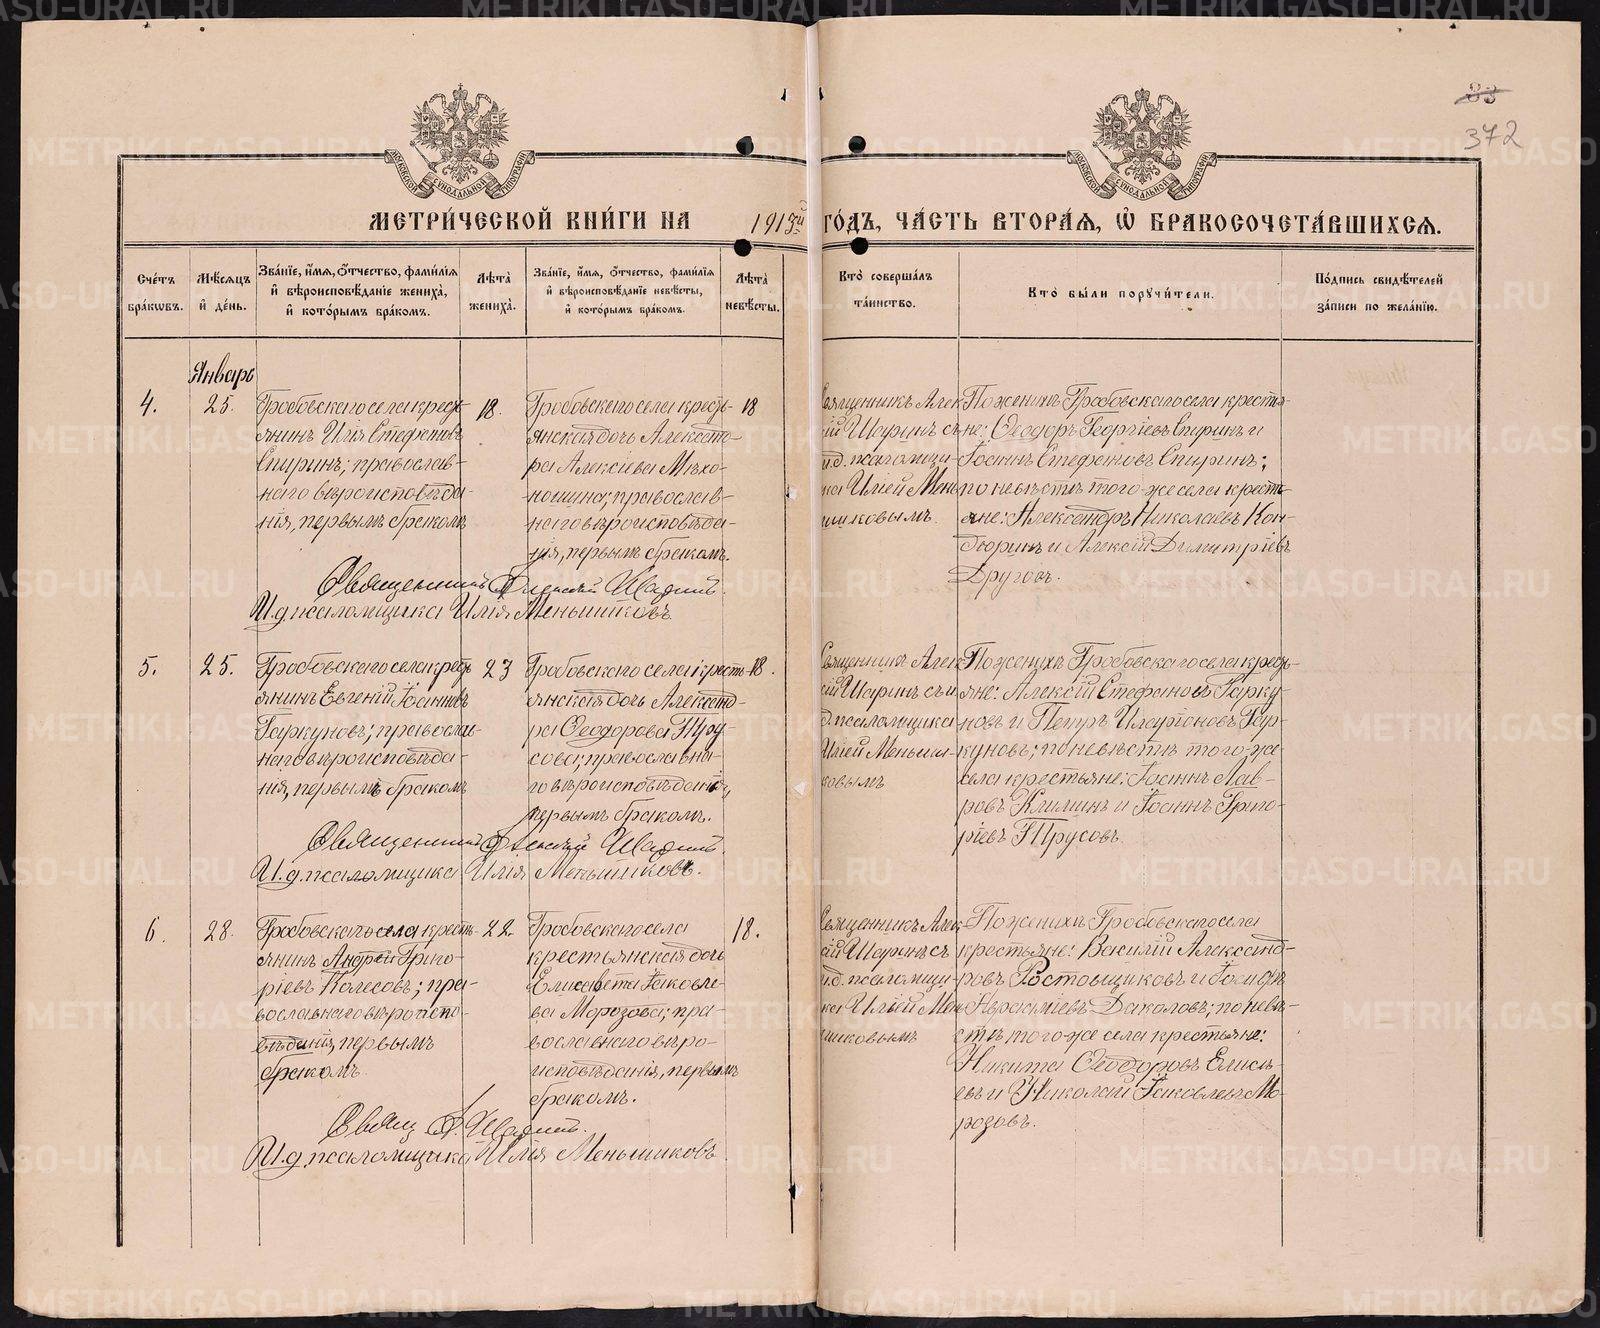 33
372
МОСКОВСКОЙ СѴНОДАЛЬНОЙ ТИПОГРАФІИ
МОСКОВСКОЙ СѴНОДАЛЬНОЙ ТИПОГРАФІИ
МЕТРИ́ЧЕСКОЙ КНИ́ГИ НА 1913й ГО́ДЪ, ЧА́СТЬ ВТОРА́Я, Ѡ БРАКОСОЧЕТА́ВШИХСЯ.
Сче́тъ бра́кѡвъ.
Мѣ́сяцъ и҆ де́нь.
Зва́нїе, и҆́мя, ѻ҆́тчество, фамі́лїя
и҆ вѣроисповѣ́данїе жениха̀,
и҆ кото́рымъ бра́комъ.
Лѣ́та жениха̀.
Зва́нїе, и҆́мя, ѻ҆́тчество, фамі́лїя
и҆ вѣроисповѣ́данїе невѣ́сты,
и҆ кото́рымъ бра́комъ.
Лѣ́та невѣ́сты.
Кто̀ соверша́лъ
та́инство.
Кто̀ бы́ли порꙋчи́тели.
По́дпись свидѣ́телей
за́писи по жела́нїю.
Январь
4.
25.
Гробовскаго села кресть-
янинъ Илія Стефановъ
Спиринъ; православ-
наго вѣроисповѣда-
нія, первымъ бракомъ
18.
Гробовскаго села кресть-
янская дочь Александ-
ра Алексіева Махо-
ношина; православ-
наго вѣроисповѣда-
нія, первымъ бракомъ.
18
Священникъ Алек
сій Шаринъ съ
и.д. псаломщи-
ка Иліей Мень
шиковымъ.
По женихѣ Гробовскаго села крестья-
не: Ѳеодоръ Георгіевъ Спиринъ и
Іоаннъ Стефановъ Спиринъ;
по невѣстѣ того-же села кресть-
яне: Александръ Николаевъ Кон-
дюринъ и Алексій Димитріевъ
Друговъ.
Священникъ Алексій
И.д. псаломщика Илія Меньшиковъ.
5.
25.
Гробовскаго села кресть-
янинъ Евгеній Іоанновъ
Гаркуновъ; православ-
наго вѣроисповѣда-
нія, первымъ бракомъ
23
Гробовскаго села кресть-
янская дочь Александ-
ра Ѳеодорова Тру-
сова; православна-
го вѣроисповѣданія,
первымъ бракомъ.
18.
Священникъ Алек
сій Шаринъ съ и
д. псаломщика
Иліей Меньши-
ковымъ
По женихѣ Гробовскаго села кресть-
яне: Алексій Стефановъ Гарку-
новъ и Петръ Иларіоновъ Гар-
куновъ; по невѣстѣ того-же
села крестьяне: Іоаннъ Лав-
ровъ Климинъ и Іоаннъ Григо-
ріевъ Трусовъ.
Священникъ Алексій
И.д. псаломщика Илія Меньшиковъ.
6.
28.
Гробовскаго села кресть-
янинъ Андрей Григо-
ріевъ Колесовъ; пра-
вославнаго вѣроиспо-
вѣданія, первымъ
бракомъ.
22.
Гробовскаго села
крестьянская дочь
Елисавета Іаковле-
ва Морозова; пра-
вославнаго вѣро-
исповѣданія, первымъ
бракомъ.
18.
Священникъ Алек
сій Шаринъ съ
и.д. псаломщи-
ка Иліей Мень
шиковымъ
По женихѣ Гробовскаго села
крестьяне: Василій Александ-
ровъ Ростовщиковъ и
Авраміевъ по невѣ-
стѣ того-же села крестьяне:
Никита Ѳеодоровъ Елисѣ-
евъ и Николай Іаковлевъ Мо-
розовъ.
Свящ А.
И.д. псаломщика Илія Меньшиковъ.
METRIKI.GASO-URAL.RU